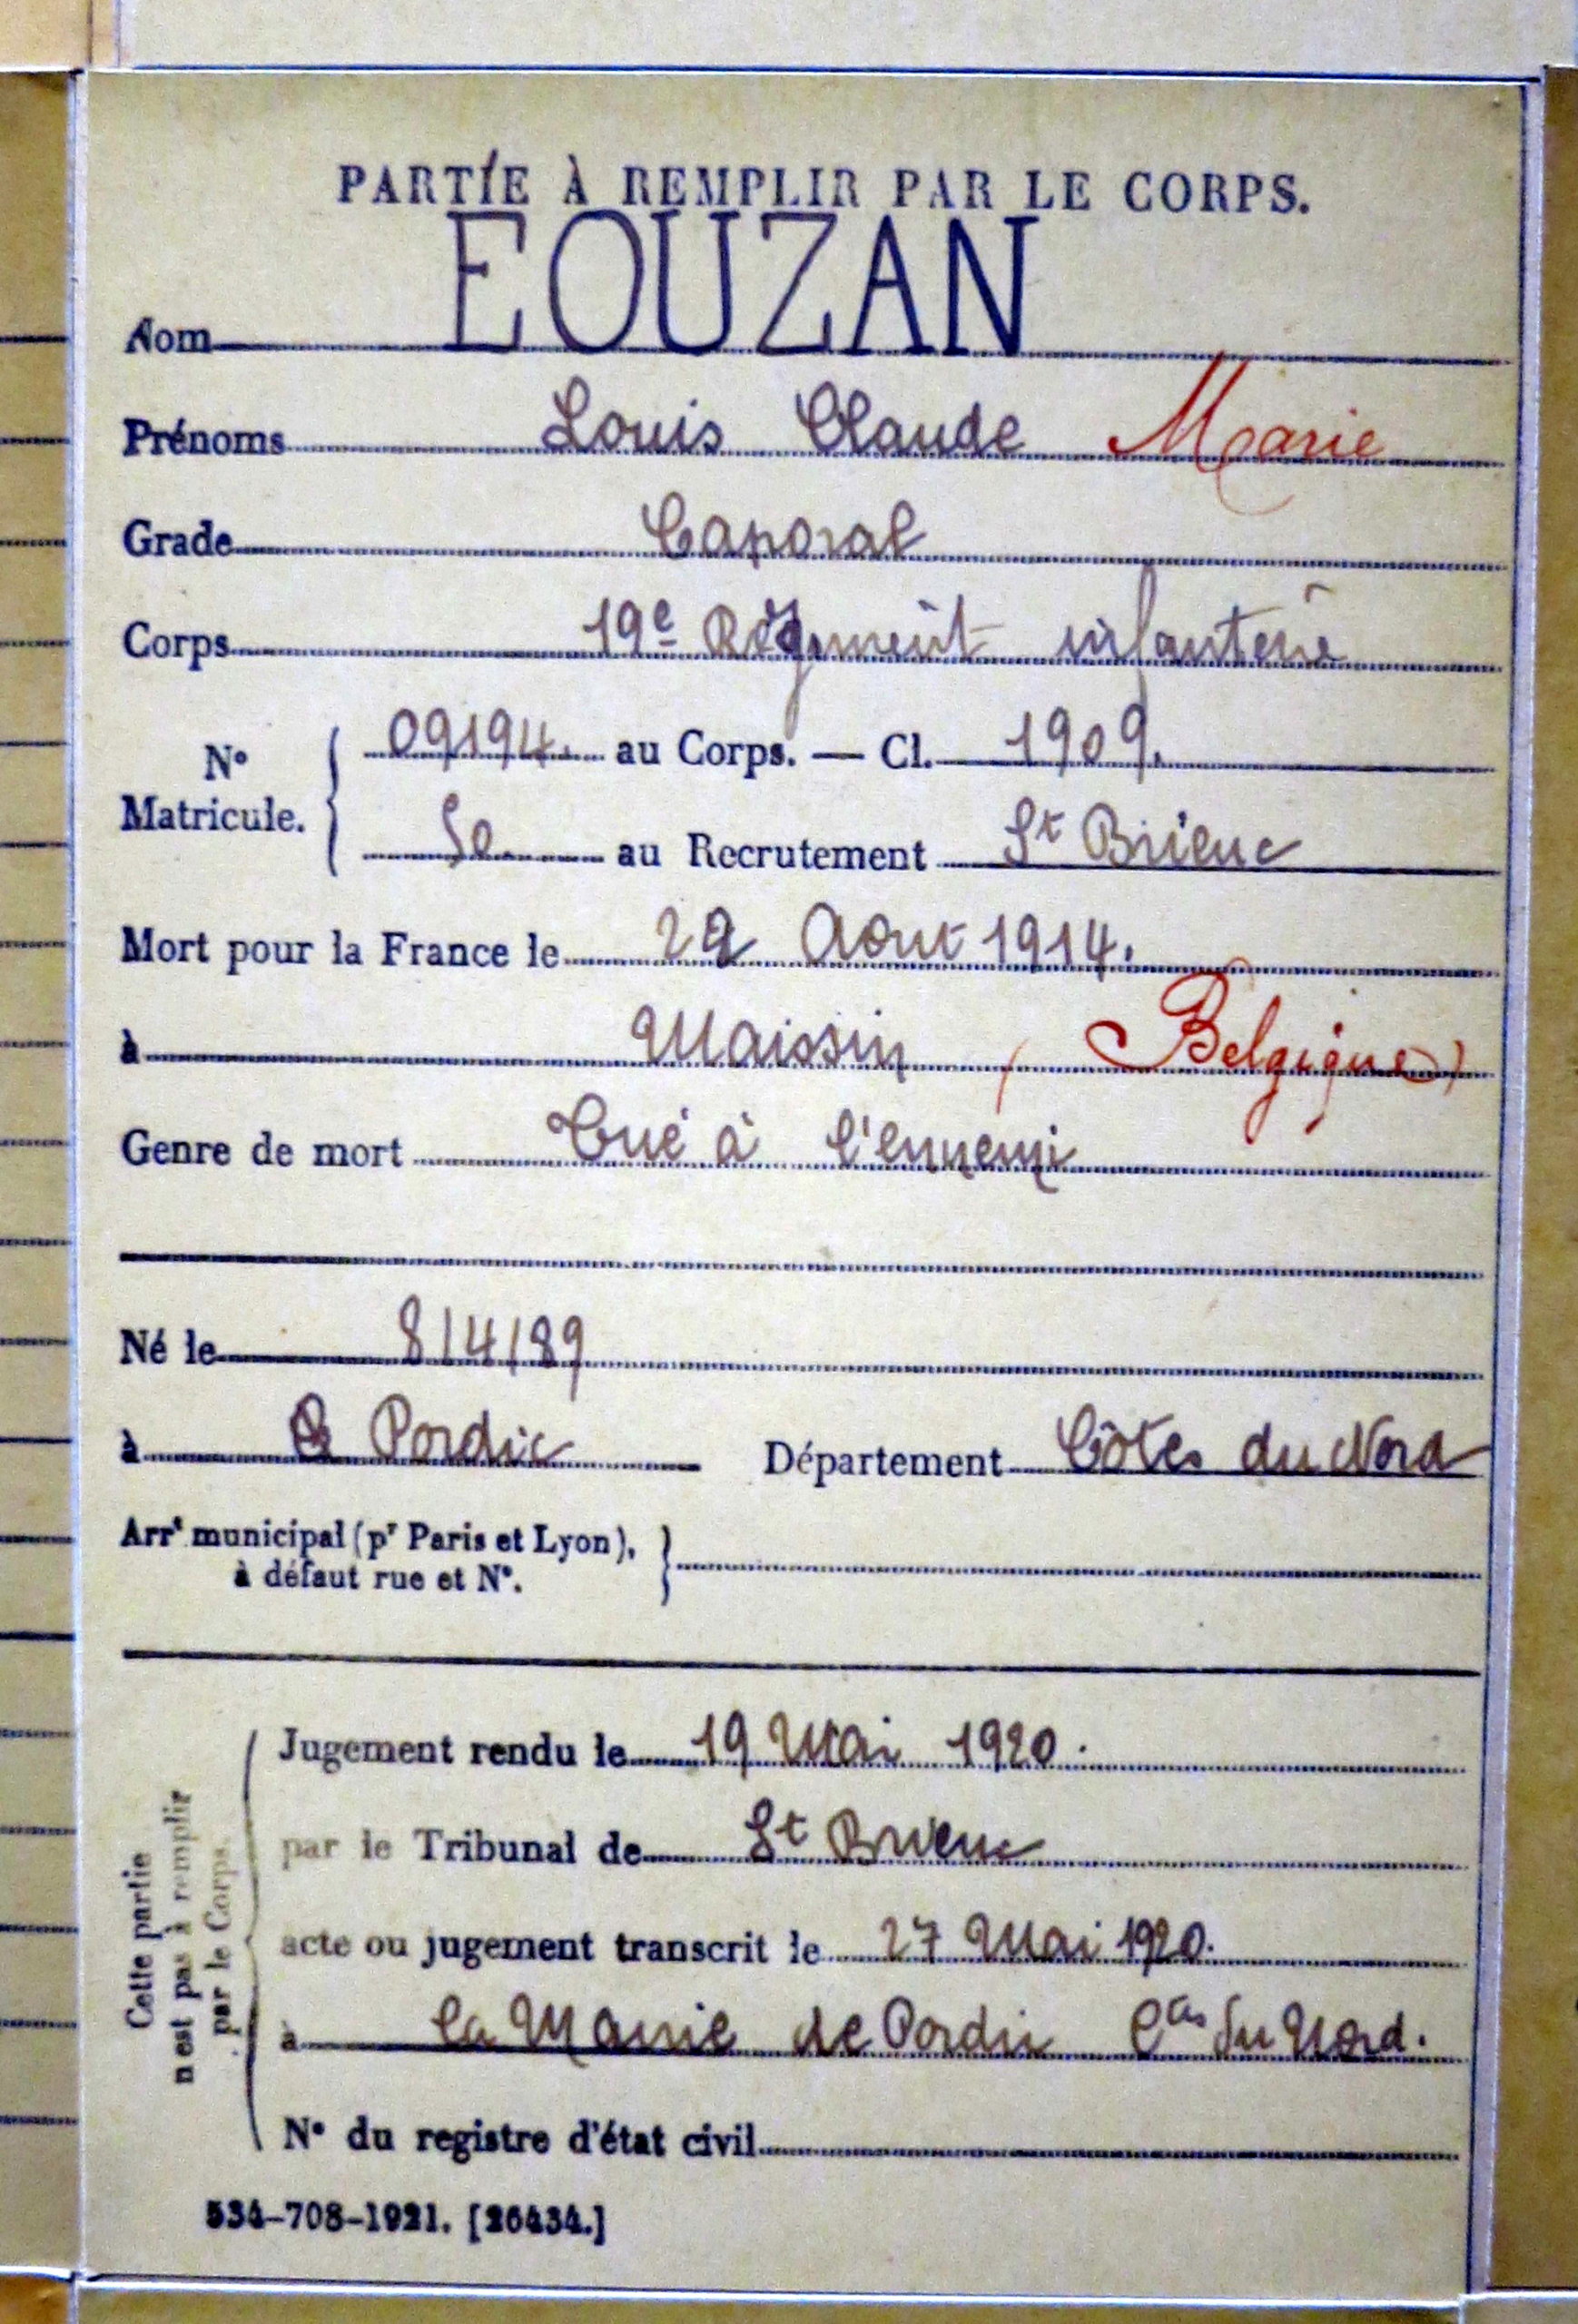 PARTIE À REMPLIR PAR LE CORPS.
Nom EOUZAN
Prénoms Louis Claude Marie
Grade Caporal
Corps 19e Régiment infanterie
N° Matricule. 09194. au Corps. — Cl. 1909.
50 au Recrutement St Brieuc
Mort pour la France le 22 Aout 1914.
à Maissin (Belgique)
Genre de mort Tué à l'ennemi
Né le 8/4/89
à Pordic Département Côtes du Nord
Arrt municipal (pr Paris et Lyon),
à défaut rue et N°.
Cette partie
n'est pas à remplir
par le Corps.
Jugement rendu le 19 Mai 1920.
par le Tribunal de St Brieuc
acte ou jugement transcrit le 27 Mai 1920.
à la Mairie de Pordic Ctes du Nord.
N° du registre d'état civil
534-708-1921. [26434.]